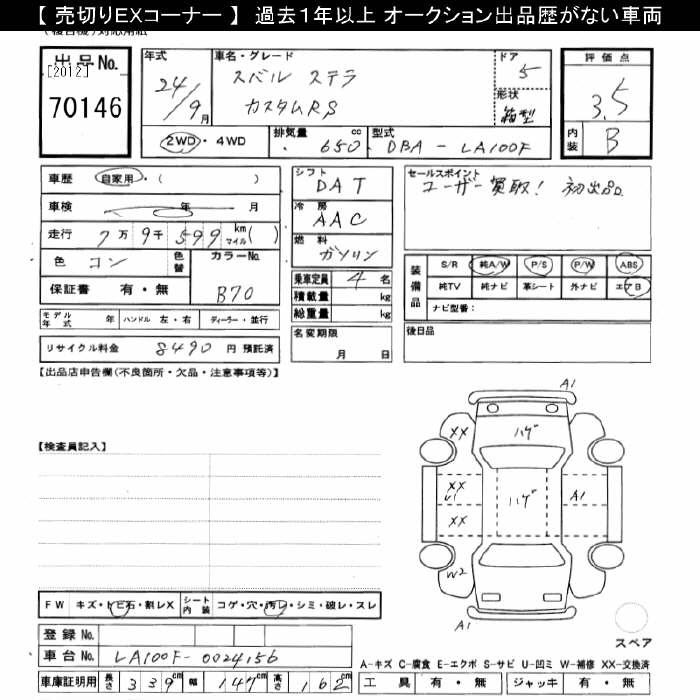 【 売切りEXコーナー 】 過去1年以上 オークション出品歴がない車両
出品No.
[2012]
70146
年式
24/9月
車名・グレード
スバル ステラ
カスタムRS
ドア
5
形状
箱型
評価点
3.5
内装
B
2WD・4WD
排気量
650 cc
型式
DBA - LA100F
車歴 自家用・( )
車検 年 月
走行 7万9千599 km マイル( )
色 コン
色替
カラーNo.
B70
保証書 有・無
シフト
DAT
冷房
AAC
燃料
ガソリン
乗車定員 4 名
積載量 kg
総重量 kg
名変期限
月 日
セールスポイント
ユーザー買取! 初出品
装備品
S/R 純A/W P/S P/W ABS
純TV 純ナビ 革シート 外ナビ エアB
ナビ型番:
後日品
モデル年式 年 ハンドル 左・右 ディーラー・並行
リサイクル料金 8490 円 預託済
【出品店申告欄(不良箇所・欠品・注意事項等)】
【検査員記入】
A1
XX
ハゲ
XX
U1
ハゲ
A1
XX
W2
A1
スペア
FW キズ・トビ石・割レX
シート内装 コゲ・穴・汚レ・シミ・破レ・スレ
登録No.
車台No. LA100F-0024156
A-キズ C-腐食 E-エクボ S-サビ U-凹ミ W-補修 XX-交換済
車庫証明用 長さ 339cm 幅 147cm 高さ 162cm
工具 有・無 ジャッキ 有・無